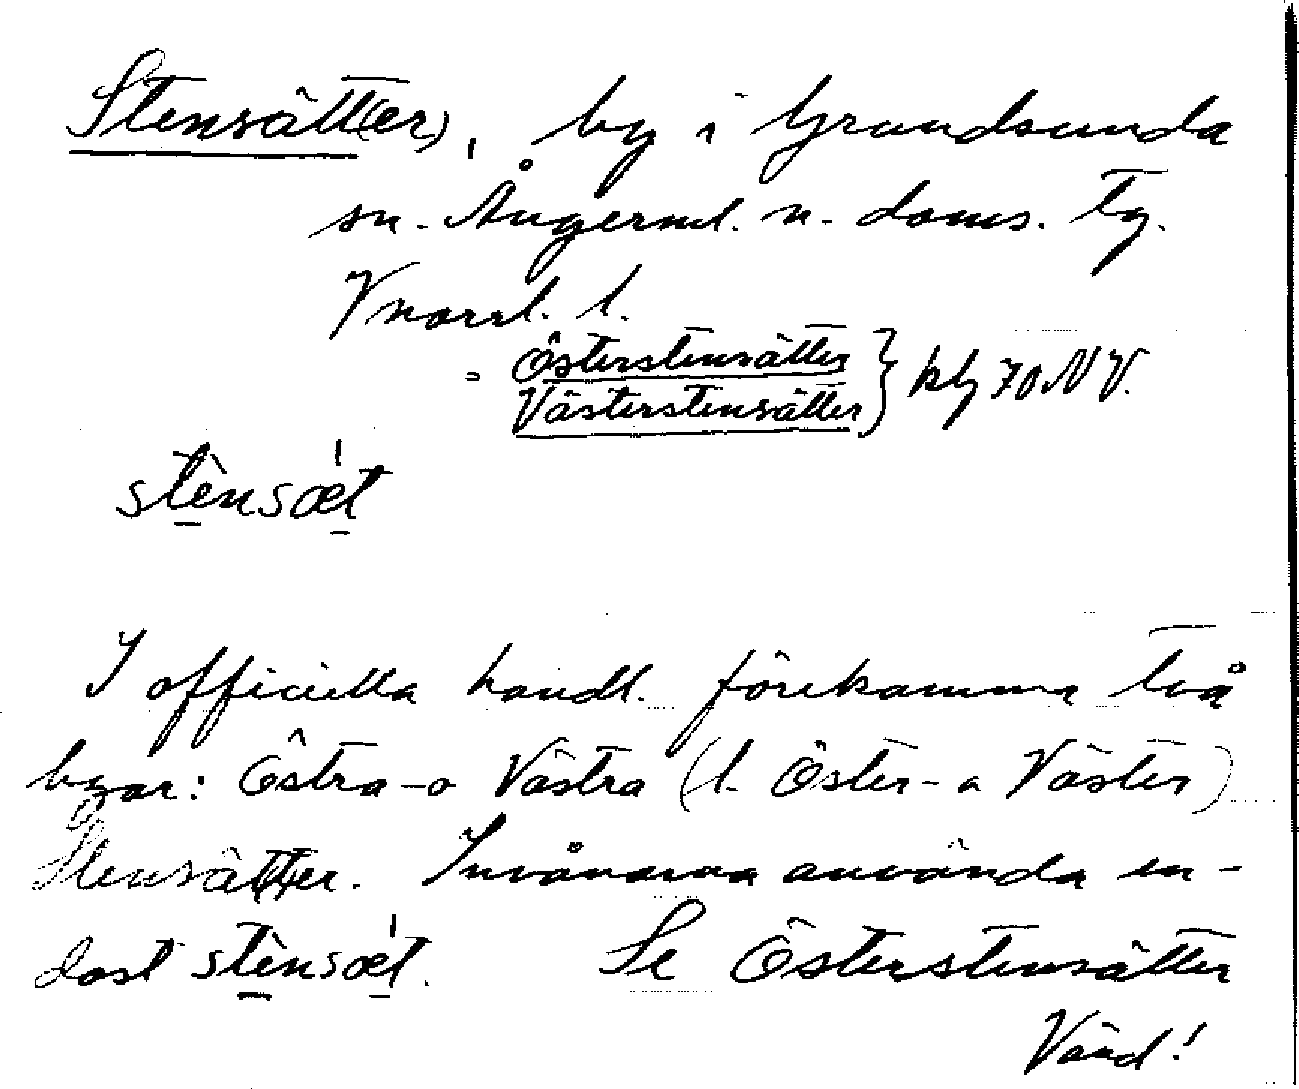 Stensätt(er), by i Grundsunda
sn. Ångerml. n. doms. tg.
Vnorrl. l.
= Österstensätter } kbl 70 NV.
Västerstensätter
stènsǽt
I officiella handl. förekomma två
byar: Östra- o Västra (l. Öster- o Väster)
Stensätt(er. Invånarna använda en-
dast stènsǽt. Se Österstensätter
Vänd!